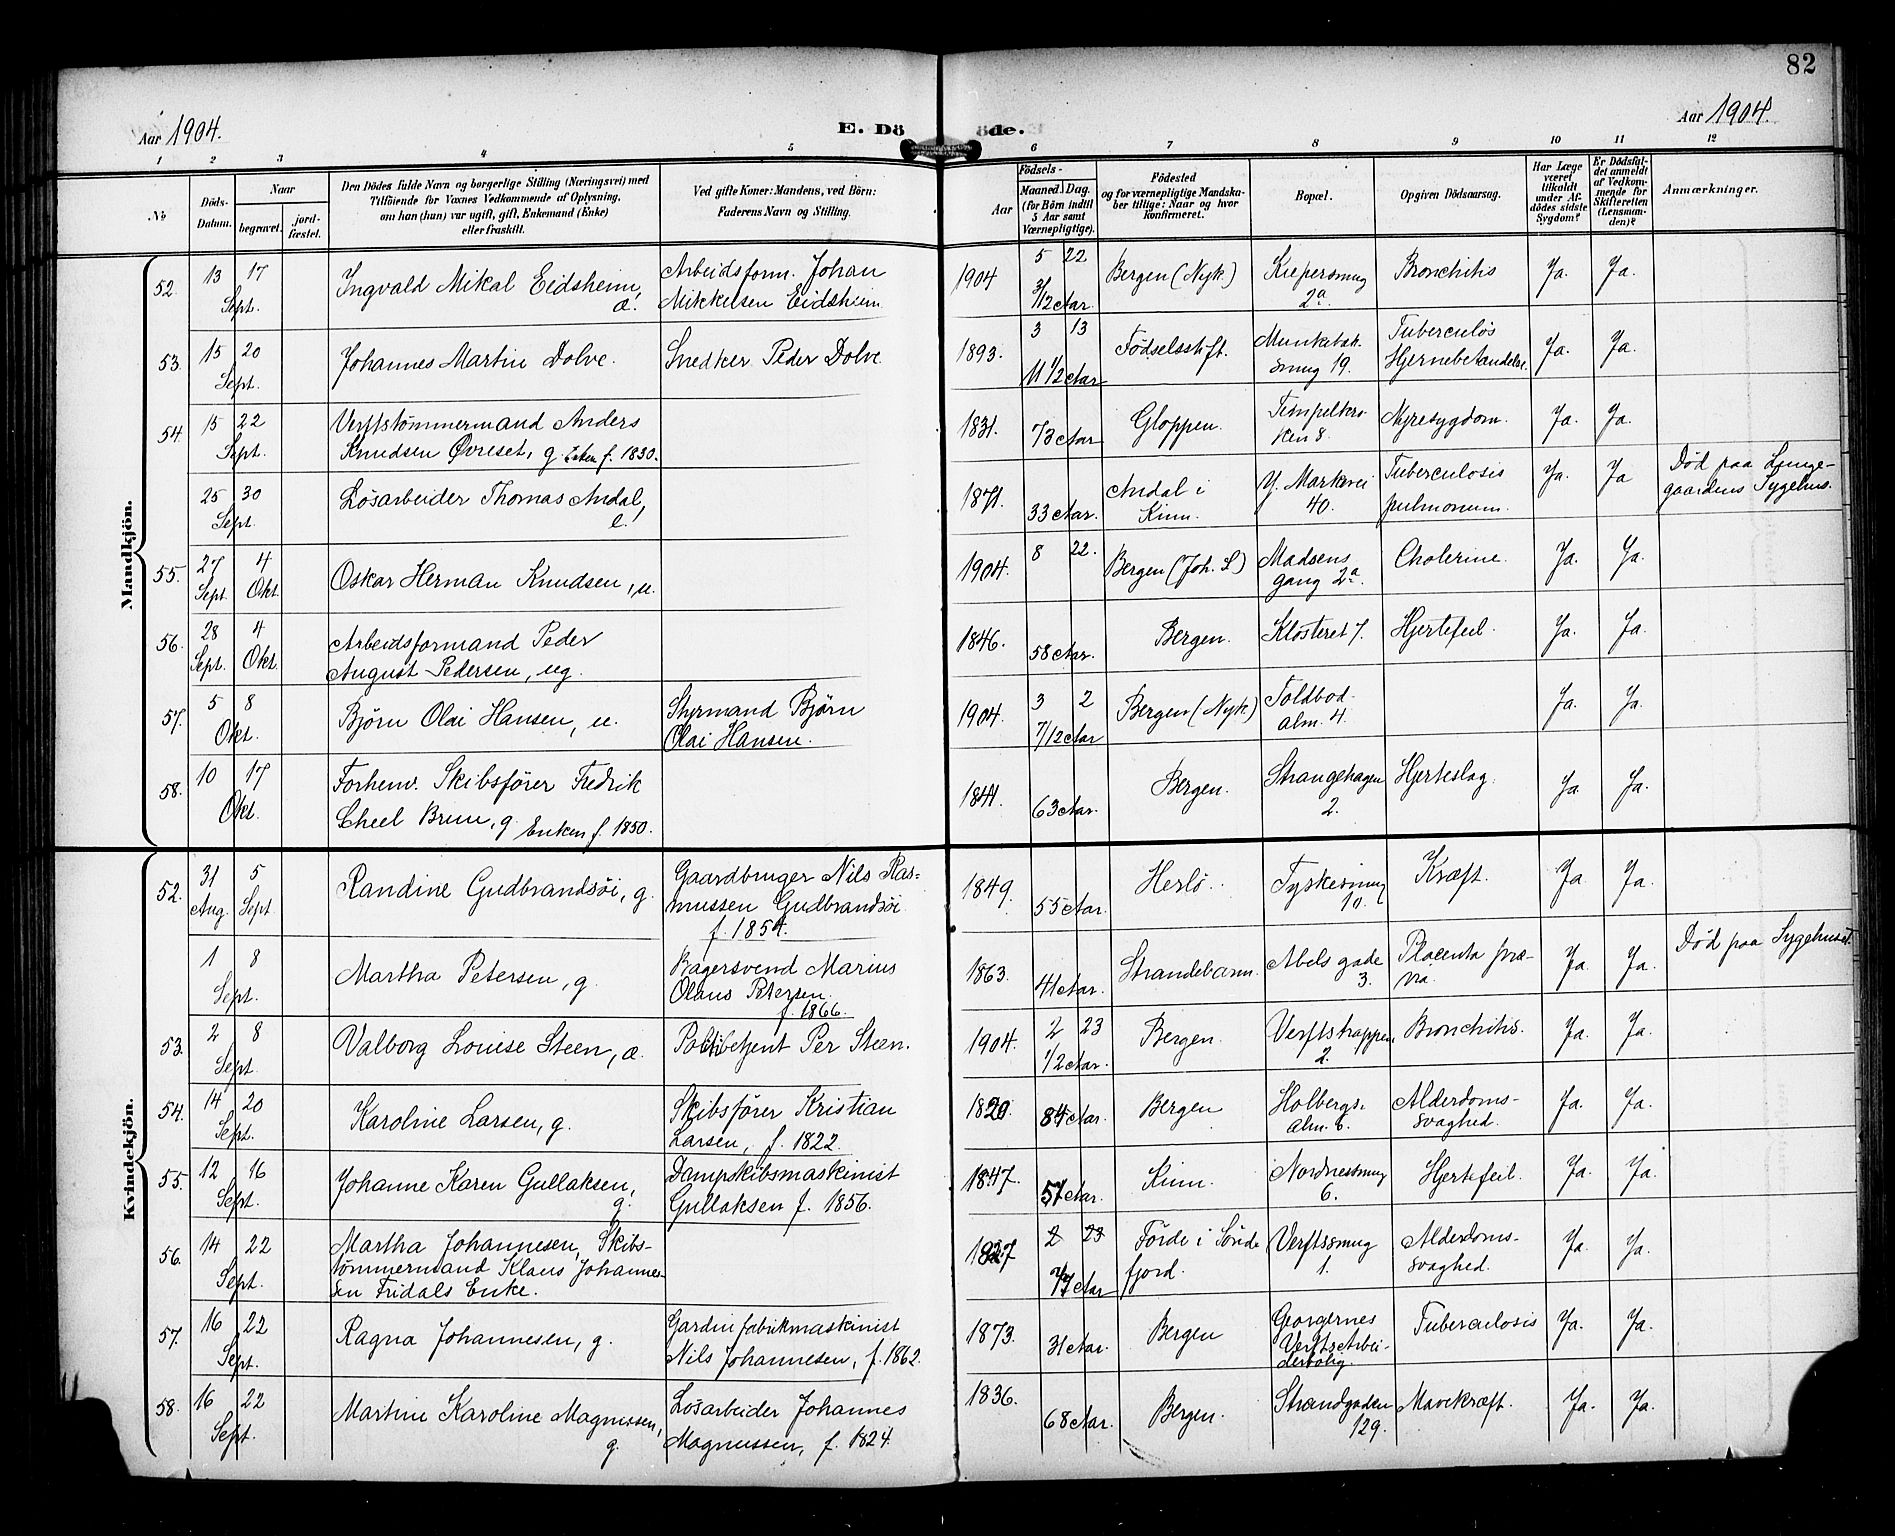 82
Aar 1904.
E. Döde.
Aar 1904.
1 2 3 4 5 6 7 8 9 10 11 12
No
Döds-Datum.
Naar
begravet.
jord-fæstet.
Den Dödes fulde Navn og borgerlige Stilling (Næringsvei) med
Tilföiende for Voxnes Vedkommende af Oplysning,
om han (hun) var ugift, gift, Enkemand (Enke)
eller fraskilt.
Ved gifte Koner: Mandens, ved Börn:
Faderens Navn og Stilling.
Födsels-
Aar
Maaned. Dag.
(for Börn indtil
5 Aar samt
Værnepligtige).
Födested
og for værnepligtige Mandska-
ber tillige: Naar og hvor
Konfirmeret.
Bopæl.
Opgiven Dödsaarsag.
Har Læge
været
tilkaldt
under Af-
dödes sidste
Sygdom?
Er Dödsfal-
det anmeldt
af Vedkom-
mende for
Skifteretten
(Lensman-
den)?
Anmærkninger.
Mandkjön.
52. 13 17 Sept.
Ingvald Mikal Eidsheim,
Arbeidsform. Johan
Mikkelsen Eidsheim
1904 5 22
3/12 Aar.
Bergen (Nyk)
2a.
Bronchitis
Ja. Ja.
53. 15 20 Sept.
Johannes Martin Dolve.
Snedker Peder Dolve
1893. 3 13
11 1/2 Aar
Födselsstift.
smug 19.
Tuberculös
Ja. Ja.
54. 15 22 Sept.
Verftstömmermand Anders
Knudsen Øvreset, g. Enken f. 1830.
1831. 73 Aar
Gloppen.
Nyresygdom.
Ja. Ja.
25 30 Sept.
Lösarbeider Thomas Andal,
1871. 33 Aar.
Andal i
Kinn.
Y. Markvei
40.
Tuberculosis
pulmonum.
Ja. Ja
Död paa Lunge-
gaardens Sygehus.
55. 27 Sept. 4 Okt.
Oskar Herman Knudsen, u.
1904. 8 22.
Bergen (Joh. S)
Madsens
gang 2a.
Cholerine.
Ja. Ja.
56. 28 Sept. 4 Okt.
Arbeidsformand Peder
August Pedersen, ug.
1846. 58 Aar.
Bergen.
Klosteret 7.
Hjertefeil.
Ja. Ja.
57. 5 8 Okt.
Bjørn Olai Hansen, u.
Styrmand Bjørn
Olai Hansen.
1904. 3 2
7/12 Aar
Bergen (Nyk)
Toldbod.
alm. 4.
Ja. Ja.
58. 10 17 Okt.
Forhenv. Skibsfører Fredrik
Brun, g. Enken f. 1850.
1841. 63 Aar.
Bergen.
Strangehagen
2.
Hjerteslag.
Ja Ja.
Kvindekjön.
52. 31 Aug. 5 Sept
Randine Gudbrandsöi, g.
Gaardbruger Nils Ras-
mussen Gudbrandsöi
f. 1854.
1849. 55 Aar.
Herlö.
Tyskesmug
10.
Kræft.
Ja Ja.
1 8 Sept.
Martha Petersen, g.
Bagersvend Marius
Olaus Petersen.
f. 1866.
1863. 41 Aar.
Strandebarm.
Abels gade
3.
Placenta præ-
via.
Ja. Ja.
Död paa Sygehuset.
53. 2 8 Sept.
Valborg Louise Steen,
Politibetjent Per Steen.
1904. 2 23
1/2 Aar.
Bergen.
2.
Bronchitis.
Ja. Ja.
54. 14 20 Sept.
Karoline Larsen, g.
Skibsfører Kristian
Larsen, f. 1822.
1820. 84 Aar.
Bergen
Holbergs.
alm. 6.
Alderdoms-
svaghed.
Ja. Ja.
55. 12 16 Sept.
Johanne Karen Gullaksen,
g.
Dampskibsmaskinist
Gullaksen f. 1856.
1847. 57 Aar.
Kinn.
Nordnessmug
6.
Hjertefeil.
Ja. Ja.
56. 14 22 Sept.
Martha Johannesen, Skibs-
tömmermand Klaus Johannes-
sen Fridals Enke.
1827 2 23
77 Aar
Förde i Sönd
fjord.
Verftssmug
1.
Alderdoms-
svaghed.
Ja. Ja.
57. 16 22 Sept.
Ragna Johannesen, g.
Gardinfabrikmaskinist
Nils Johannesen, f. 1862.
1873. 31 Aar.
Bergen
Georgernes
Verfts Arbei-
derbolig.
Tuberculosis
Ja. Ja.
58. 16 22 Sept.
Martine Karoline Magnussen,
g.
Lösarbeider Johannes
Magnussen, f. 1824.
1836. 68 Aar.
Bergen.
Strandgaden
129.
Mavekræft.
Ja. Ja.